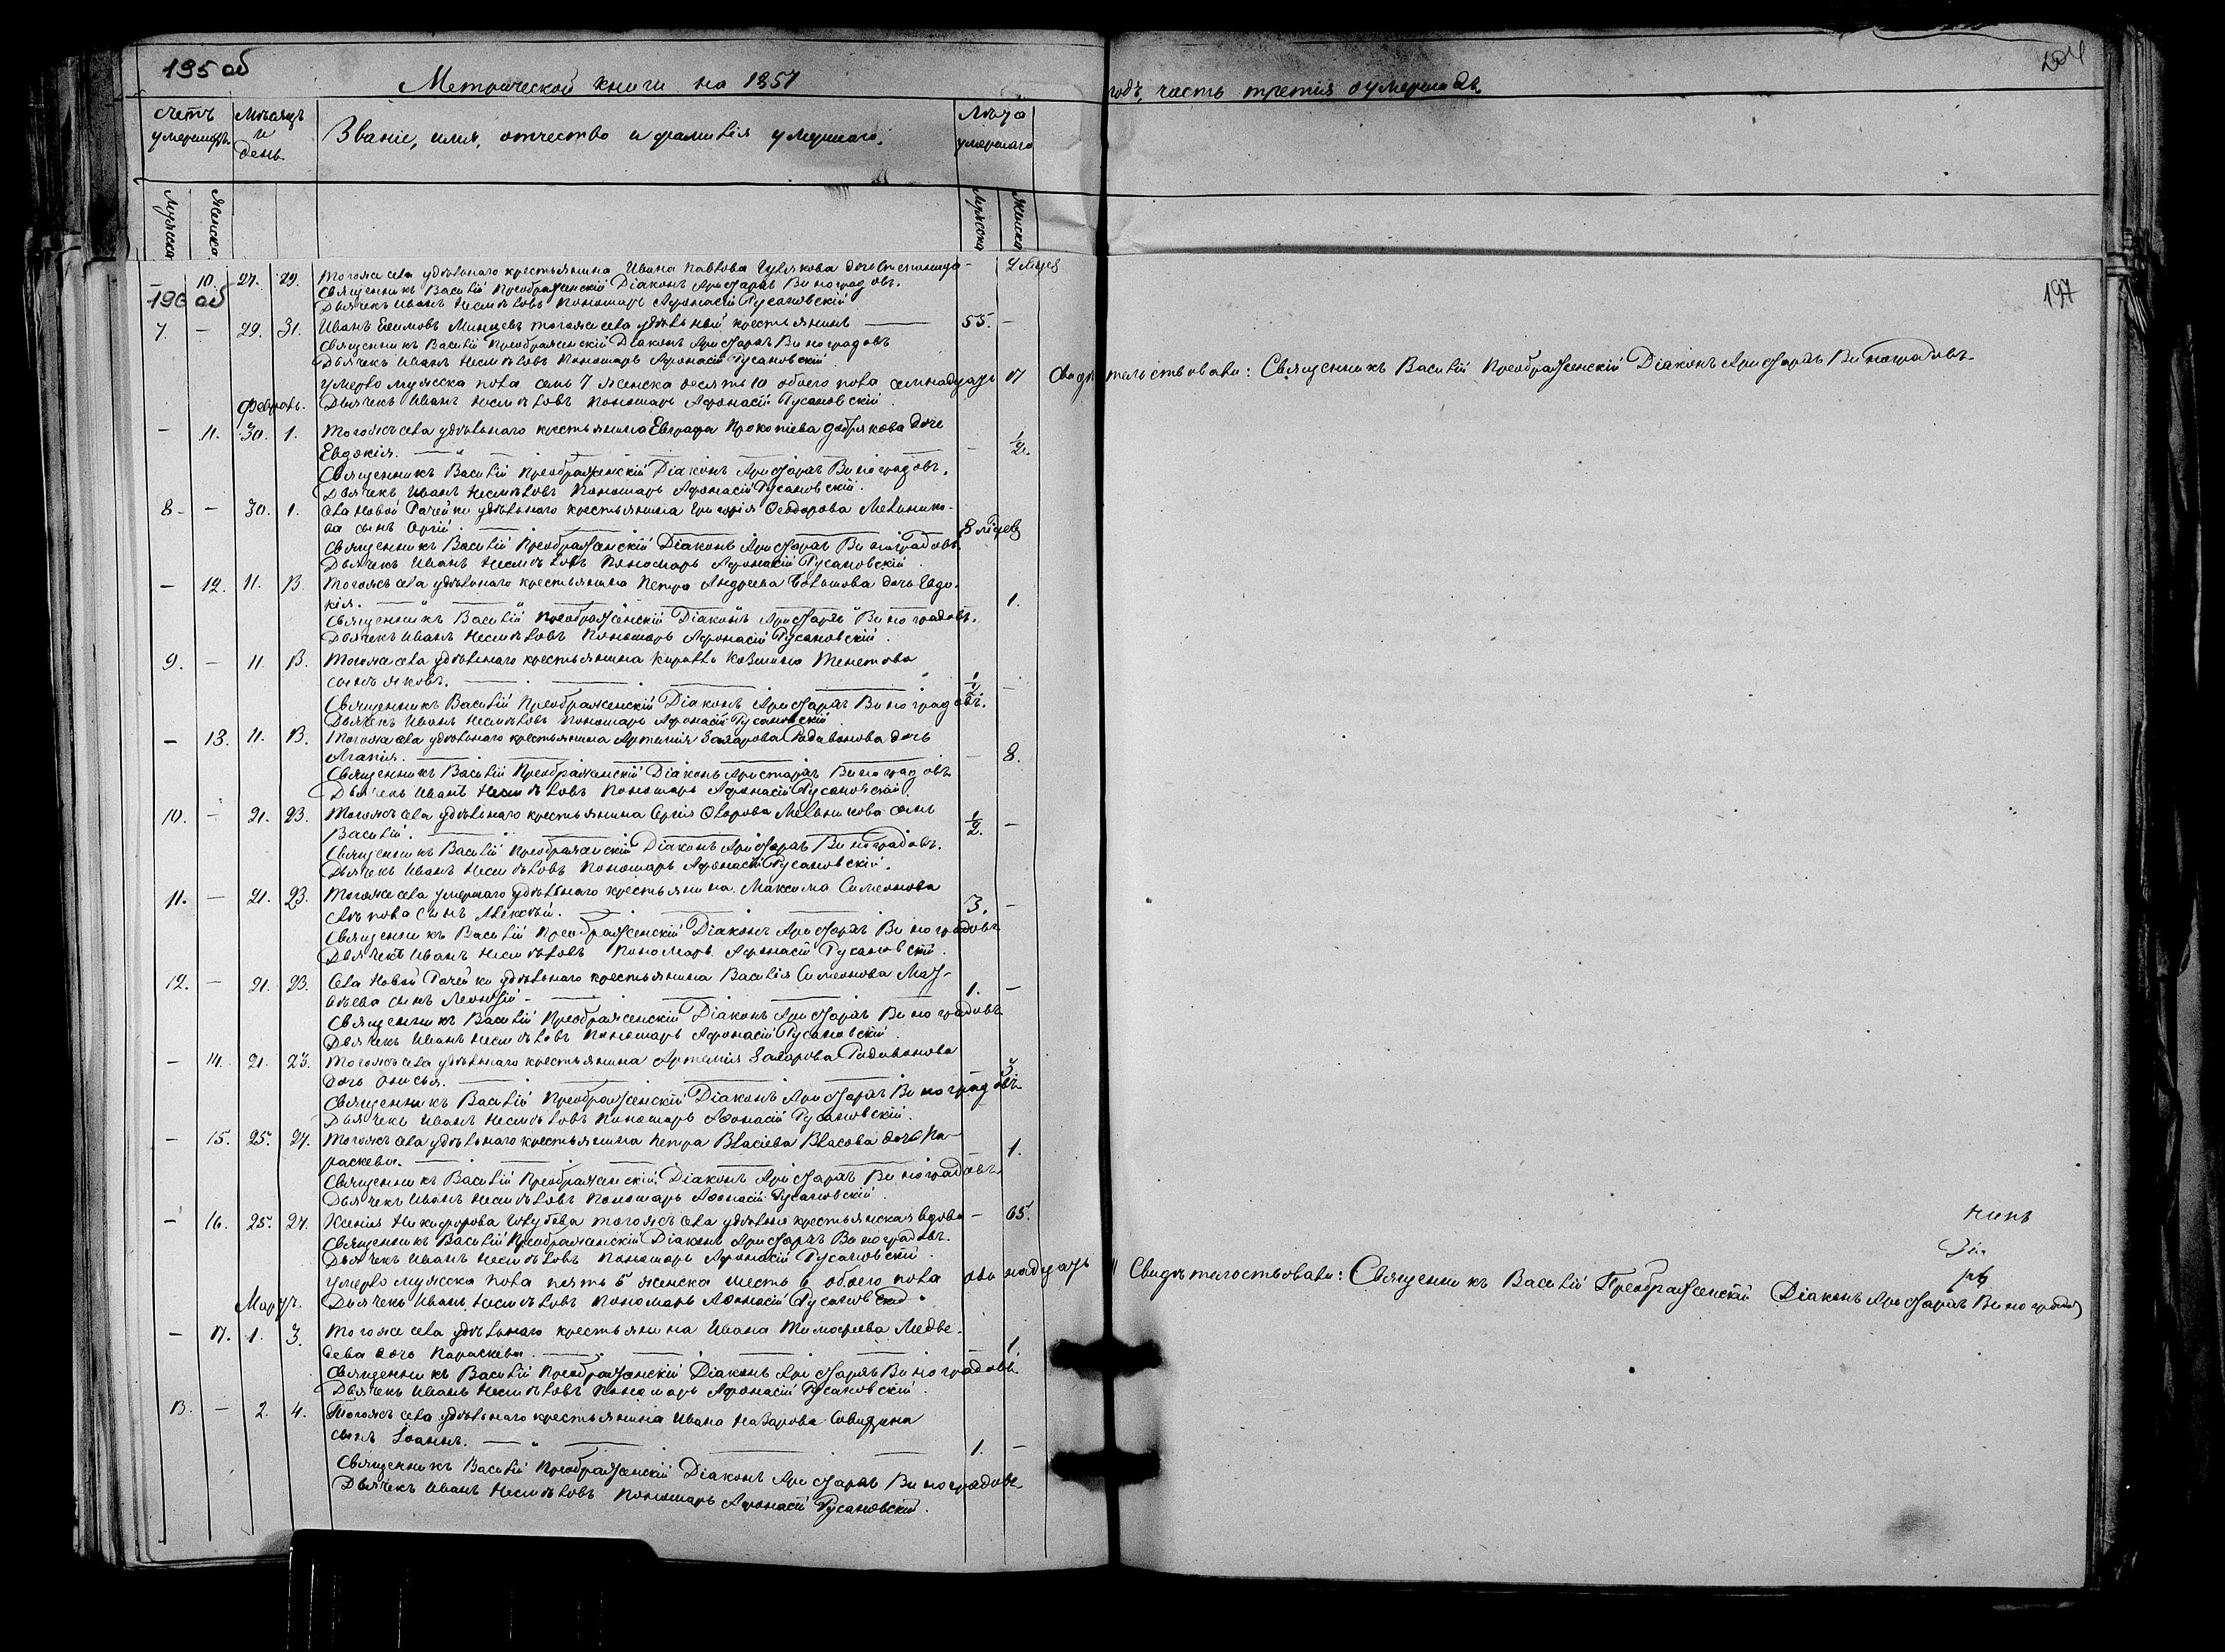 195 об
Метрической книги на 1857 годъ, часть третія о умершихъ.
194
счетъ умершихъ. Мѣсяцъ и день. Званіе, имя, отчество и фамилія умершаго. Лѣта умершаго
Мужеска Женска Мужеска Женска
196 об
197
– 10. 27. 29. Тогоже села удѣльнаго крестьянина Ивана Павлова дочь
Священникъ Василій Преображенскій Діаконъ Аристархъ Виноградовъ.
Дьячекъ Иванъ Несмѣловъ Пономарь Афонасій Русановскій
7. – 29. 31. Иванъ Ефимовъ Минцевъ тогоже села удѣльный крестьянинъ – 55. –
Священникъ Василій Преображенскій Діаконъ Аристархъ Виноградовъ
Дьячекъ Иванъ Несмѣловъ Пономарь Афонасій Русановскій
Умерло мужеска пола семь 7 женска десять 10 обоего пола семнадцать 17 Свидѣтельствовали: Священникъ Василій Преображенскій Діаконъ Аристархъ Виноградовъ
Февраль. Дьячекъ Иванъ Несмѣловъ Пономарь Афонасій Русановскій
– 11. 30. 1. Тогожъ села удѣльнаго крестьянина Евграфа Прокопіева Добрякова дочь
Евдокія. – ½.
Священникъ Василій Преображенскій Діаконъ Аристархъ Виноградовъ.
Дьячекъ Иванъ Несмѣловъ Пономарь Афонасій Русановскій.
8. – 30. 1. Села Новой Рачейки удѣльнаго крестьянина Григорія Феодорова Мельнико-
ва сынъ Сергій. 8 мѣсцев
Священникъ Василій Преображенскій Діаконъ Аристархъ Виноградовъ.
Дьячекъ Иванъ Несмѣловъ Пономарь Афонасій Русановскій
– 12. 11. 13. Тогожъ села удѣльнаго крестьянина Петра Андреева Большова дочь Евдо-
кія. – 1.
Священникъ Василій Преображенскій Діаконъ Аристархъ Виноградовъ.
Дьячекъ Иванъ Несмѣловъ Пономарь Афонасій Русановскій.
9. – 11. 13. Тогоже села удѣльнаго крестьянина Кирилла Козмина Тенетова
сынъ Яковъ. ½ –
Священникъ Василій Преображенскій Діаконъ Аристархъ Виноградовъ.
Дьячекъ Иванъ Несмѣловъ Пономарь Афонасій Русановскій.
– 13. 11. 13. Тогоже села удѣльнаго крестьянина Артемія Захарова Радивонова дочь
Агапія. – 8.
Священникъ Василій Преображенскій Діаконъ Аристархъ Виноградовъ
Дьячекъ Иванъ Несмѣловъ Пономарь Афонасій Русановскій.
10. – 21. 23. Тогожъ села удѣльнаго крестьянина Сергія Мельникова сынъ
Василій. ½. –
Священникъ Василій Преображенскій Діаконъ Аристархъ Виноградовъ.
Дьячекъ Иванъ Несмѣловъ Пономарь Афонасій Русановскій.
11. – 21. 23. Тогоже села умершаго удѣльнаго крестьянина Максима Симеонова
сынъ Алексѣй. 3. –
Священникъ Василій Преображенскій Діаконъ Аристархъ Виноградовъ
Дьячекъ Иванъ Несмѣловъ Пономарь Афонасій Русановскій.
12. – 21. 23. Села Новой Рачейки удѣльнаго крестьянина Василія Симеонова Мат-
вѣева сынъ Леонтій – 1. –
Священникъ Василій Преображенскій Діаконъ Аристархъ Виноградовъ
Дьячекъ Иванъ Несмѣловъ Пономарь Афонасій Русановскій
– 14. 21. 23. Тогожъ села удѣльнаго крестьянина Артемія Захарова Радивонова
дочь Онисья. – 3.
Священникъ Василій Преображенскій Діаконъ Аристархъ Виноградовъ
Дьячекъ Иванъ Несмѣловъ Пономарь Афонасій Русановскій.
– 15. 25. 27. Тогожъ села удѣльнаго крестьянина Петра Власіева Власова дочь Па-
раскева. – 1.
Священникъ Василій Преображенскій Діаконъ Аристархъ Виноградовъ
Дьячекъ Иванъ Несмѣловъ Пономарь Афонасій Русановскій.
– 16. 25. 27. Ксенія Никифорова тогожъ села удѣльно крестьянская вдова – 65.
Священникъ Василій Преображенскій Діаконъ Аристархъ Виноградовъ.
Дьячекъ Иванъ Несмѣловъ Пономарь Афонасій Русановскій.
Умерло мужеска пола пять 5 женска шесть 6 обоего пола одинадцать 11 Свидѣтельствовали: Священникъ Василій Преображенскій Діаконъ Аристархъ Виноградовъ
Мартъ. Дьячекъ Иванъ Несмѣловъ Пономарь Афонасій Русановскій.
– 17. 1. 3. Тогоже села удѣльнаго крестьянина Ивана Тимофеева Медве-
дева дочь Параскева. – 1.
Священникъ Василій Преображенскій Діаконъ Аристархъ Виноградовъ.
Дьячекъ Иванъ Несмѣловъ Пономарь Афонасій Русановскій.
13. – 2. 4. Тогожъ села удѣльнаго крестьянина Ивана Назарова
сынъ Іоаннъ. 1. –
Священникъ Василій Преображенскій Діаконъ Аристархъ Виноградовъ
Дьячекъ Иванъ Несмѣловъ Пономарь Афонасій Русановскій.